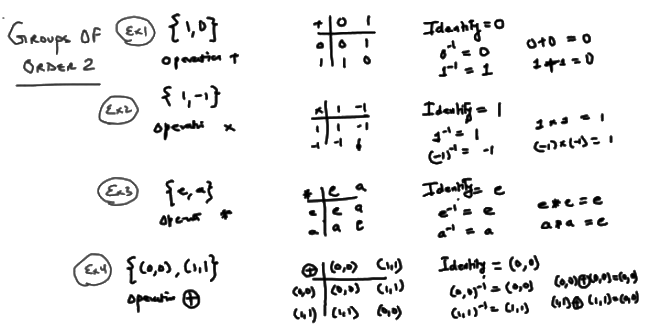 GROUPS OF
ORDER 2
Ex1 {1,0}
operation +
+ | 0 1
0 | 0 1
1 | 1 0
Identity = 0
0⁻¹ = 0
1⁻¹ = 1
0+0 = 0
1+1 = 0
Ex2 {1,-1}
operati x
x | 1 -1
1 | 1 -1
-1 | -1 1
Identity = 1
1⁻¹ = 1
(-1)⁻¹ = -1
1 x 1 = 1
(-1)x(-1) = 1
Ex3 {e,a}
operati *
* | e a
e | e a
a | a e
Identity = e
e⁻¹ = e
a⁻¹ = a
e*e = e
a*a = e
Ex4 {(0,0),(1,1)}
operation ⊕
⊕ | (0,0) (1,1)
(0,0) | (0,0) (1,1)
(1,1) | (1,1) (0,0)
Identity = (0,0)
(0,0)⁻¹ = (0,0)
(1,1)⁻¹ = (1,1)
(0,0)⊕(0,0)=(0,0)
(1,1)⊕(1,1)=(0,0)